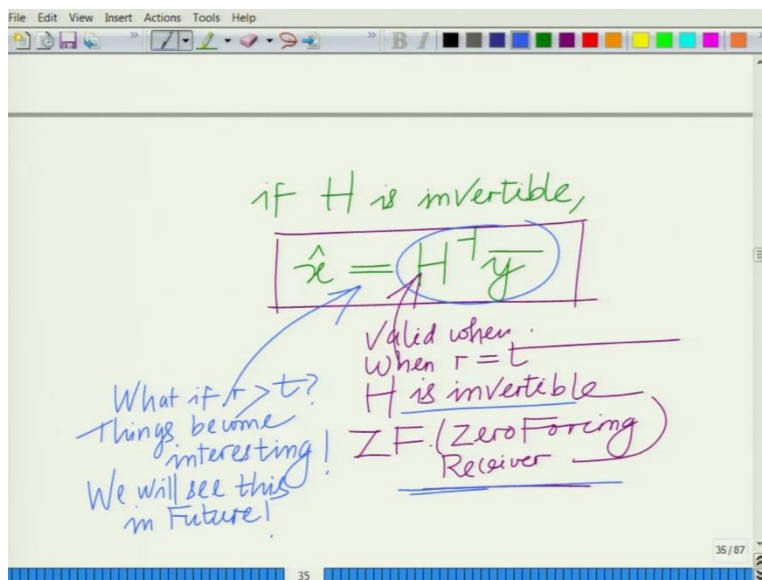 File Edit View Insert Actions Tools Help
B I
if H is invertible,
x̂ = H⁻¹ y̅
Valid when.
when r = t
H is invertible
ZF. (Zero Forcing
Receiver
What if r > t?
Things become
interesting!
We will see this
in Future!
35/87
35